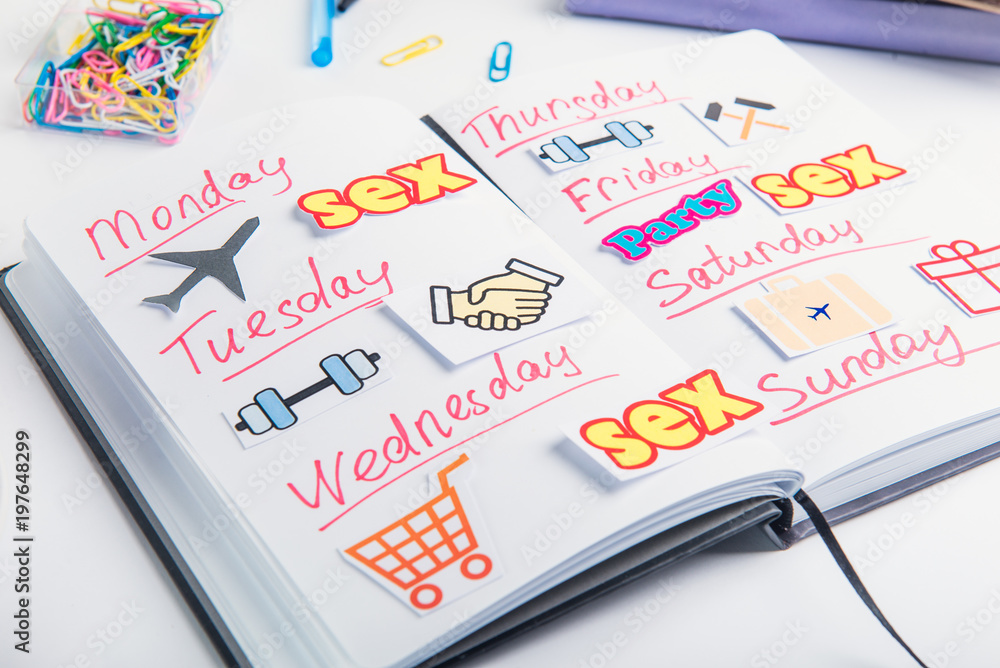 Monday
sex
Tuesday
Wednesday
sex
Thursday
Friday
sex
Party
Saturday
Sunday
Adobe Stock | #197648299